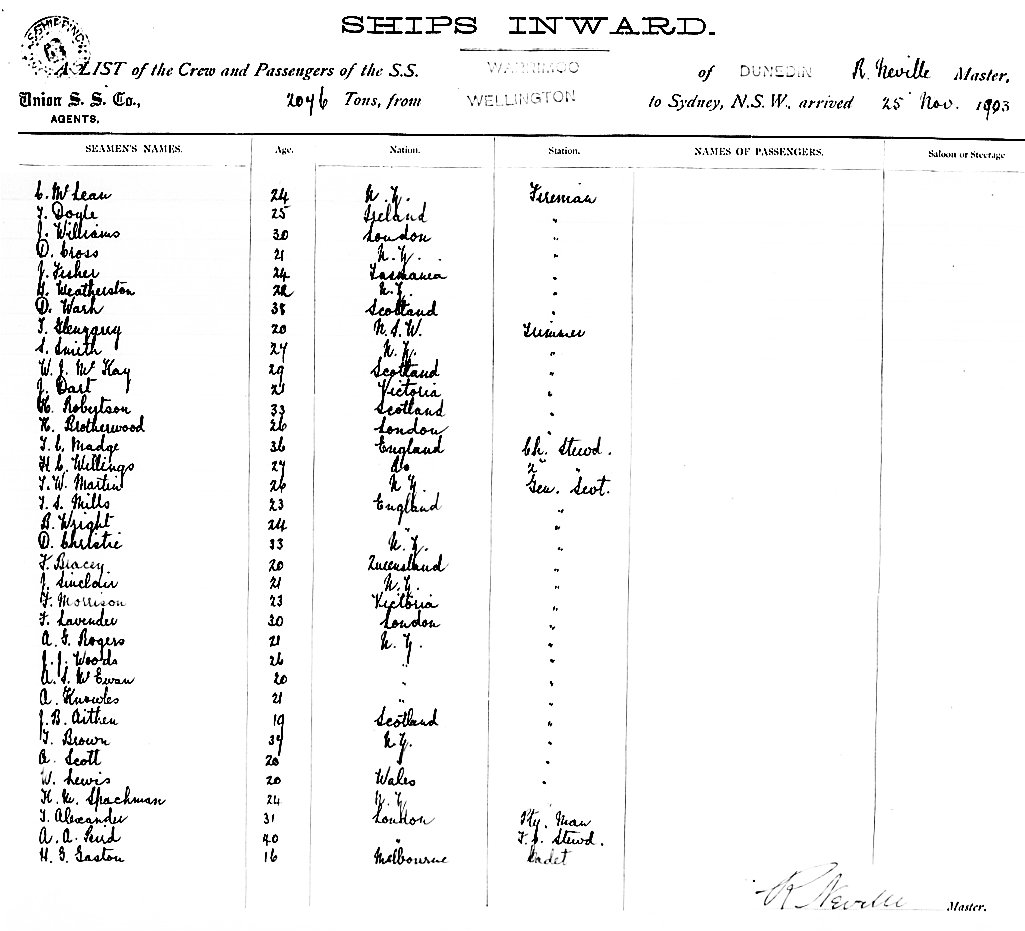 SHIPS INWARD.
A LIST of the Crew and Passengers of the S.S. WARRIMOO of DUNEDIN R. Neville Master,
Union S. S. Co., 2076 Tons, from WELLINGTON to Sydney, N.S.W., arrived 25 Nov. 1903
AGENTS.
SEAMEN'S NAMES. Age. Nation. Station. NAMES OF PASSENGERS. Saloon or Steerage
C. McLean 24 N.Z. Fireman
T. Doyle 25 Ireland "
J. Williams 30 London "
D. Cross 21 N.Z. "
J. Fisher 24 Tasmania "
Weatherston 22 N.Z. "
D. Wark 38 Scotland "
T. 20 N.S.W. Trimmer
S. Smith 27 N.Z. "
W. J. McKay 29 Scotland "
J. Dart 21 Victoria "
Robertson 33 Scotland "
H. Brotherwood 26 London "
T. C. Madge 36 England Ch. Stewd.
H. C. Willings 27 do 2" "
T. W. Martin 26 N Z. Gen. Servt.
T. S. Mills 23 England "
B. Wright 24 " "
D. Christie 33 N.Z. "
F. Bracey 20 Queensland "
J. Sinclair 21 N.Z. "
F. Morrison 23 Victoria "
F. Lavender 30 London "
A. G. Rogers 21 N.Z. "
J. J. Woods 26 " "
A. S. McEwan 20 " "
A. Knowles 21 " "
J. B. Aitken 19 Scotland "
T. Brown 37 N.Z. "
A. Scott 20 "
W. Lewis 20 Wales "
H. M. Spachman 24 N.Z.
T. Alexander 31 London Pty. Man
A. A. Reid 40 " F. C. Stewd.
H. G. Gaston 16 Melbourne Cadet
R Neville Master.